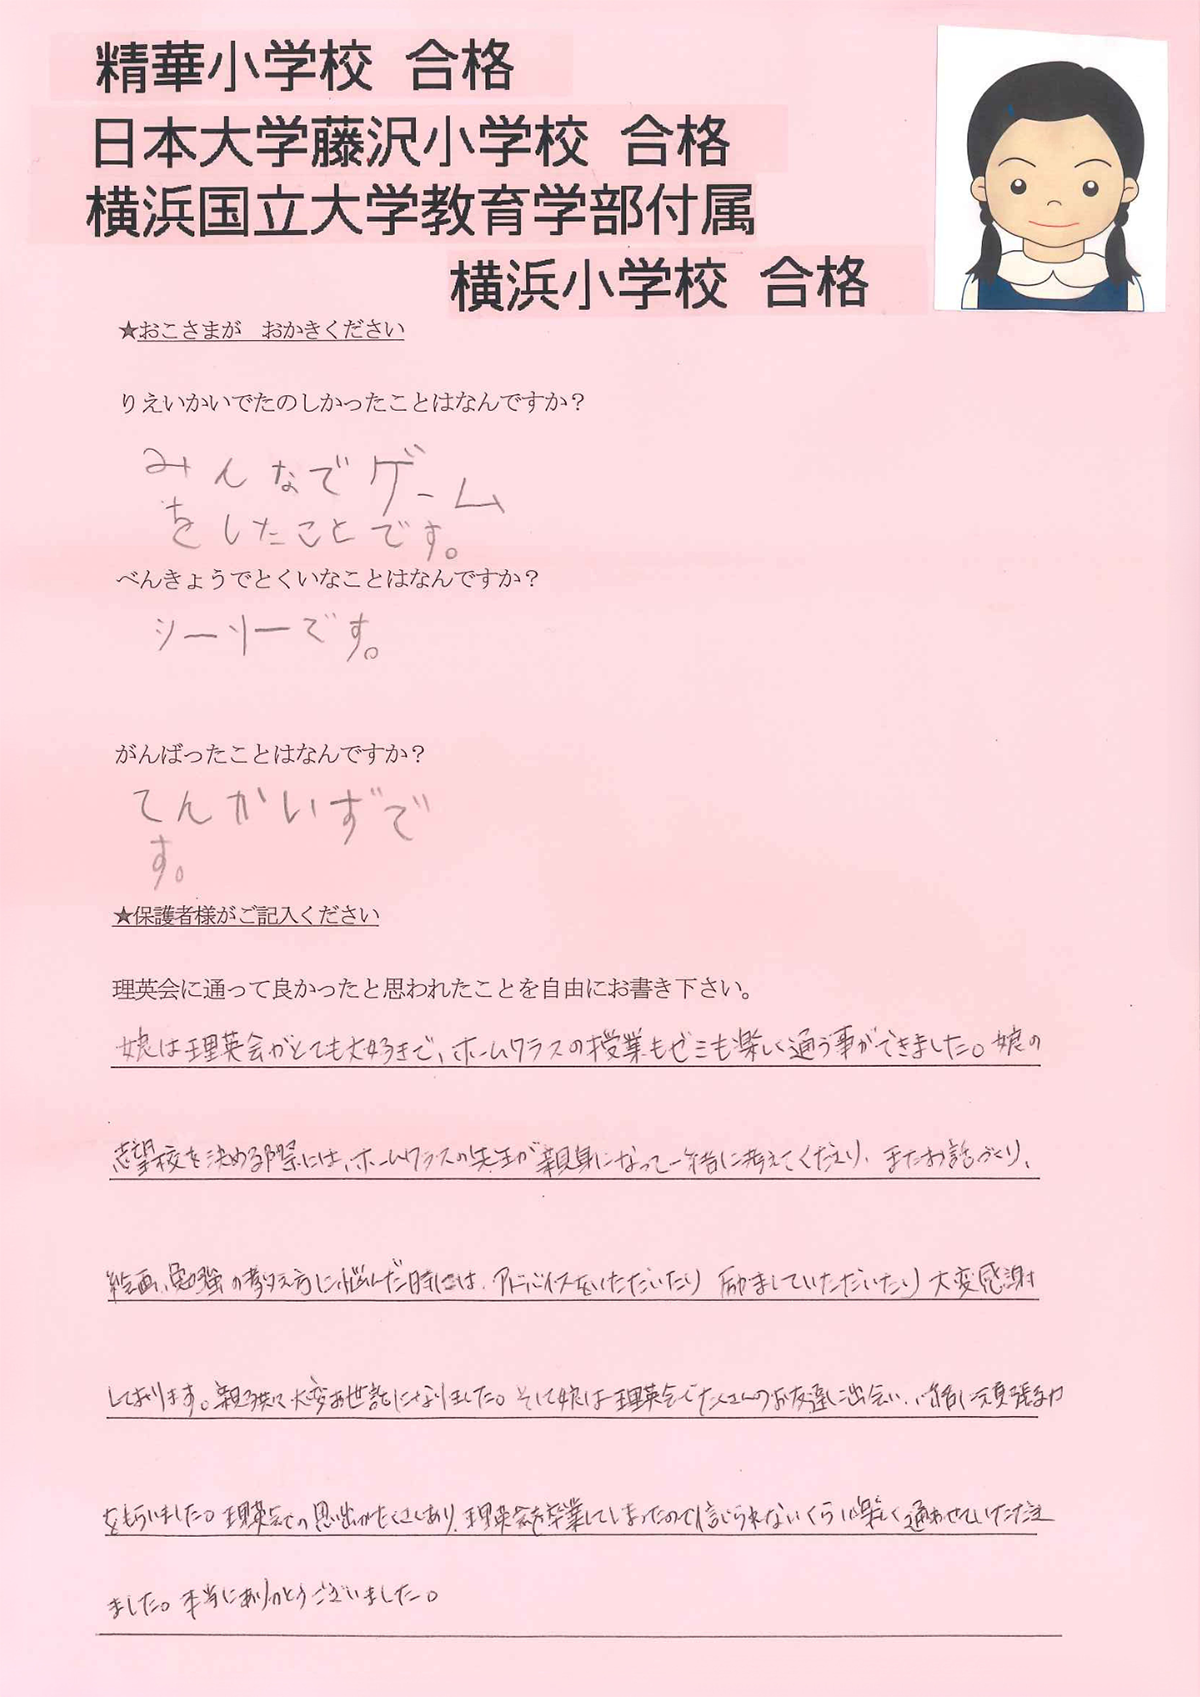 精華小学校 合格
日本大学藤沢小学校 合格
横浜国立大学教育学部付属
横浜小学校 合格
★おこさまが おかきください
りえいかいでたのしかったことはなんですか？
みんなでゲーム
をしたことです。
べんきょうでとくいなことはなんですか？
シーソーです。
がんばったことはなんですか？
てんかいずで
す。
★保護者様がご記入ください
理英会に通って良かったと思われたことを自由にお書き下さい。
娘は理英会がとても大好きで、ホームクラスの授業もゼミも楽しく通う事ができました。娘の
志望校を決める際には、ホームクラスの先生が親身になって一緒に考えてくださり、またお話づくり、
絵画、勉強の教え方に悩んだ時には、アドバイスをいただいたり 励ましていただいたり 大変感謝
しております。親子共に大変お世話になりました。そして娘は理英会でたくさんのお友達に出会い、一緒に頑張る力
をもらいました。理英会での思い出がたくさんあり、理英会を卒業してしまったので信じられないくらい楽しく通わせていただき
ました。本当にありがとうございました。